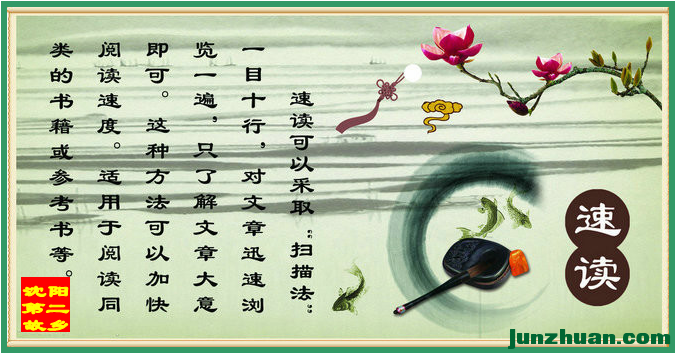 速读
速读可以采取“扫描法”
一目十行，对文章迅速浏
览一遍，只了解文章大意
即可。这种方法可以加快
阅读速度。适用于阅读同
类的书籍或参考书等。
沈阳
第二
故乡
junzhuan.com